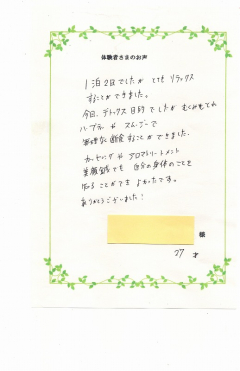 体験者さまのお声
1泊2日でしたが とても リラックス
することができました。
今回、デトックス 目的でしたが むくみもとれ
ハーブティー や スムージーで
無理なく断食することができました。
カッピングや アロマトリートメント
美顔鍼でも 自分の身体のことを
知ることができ よかったです。
ありがとうございました!
様
27 才